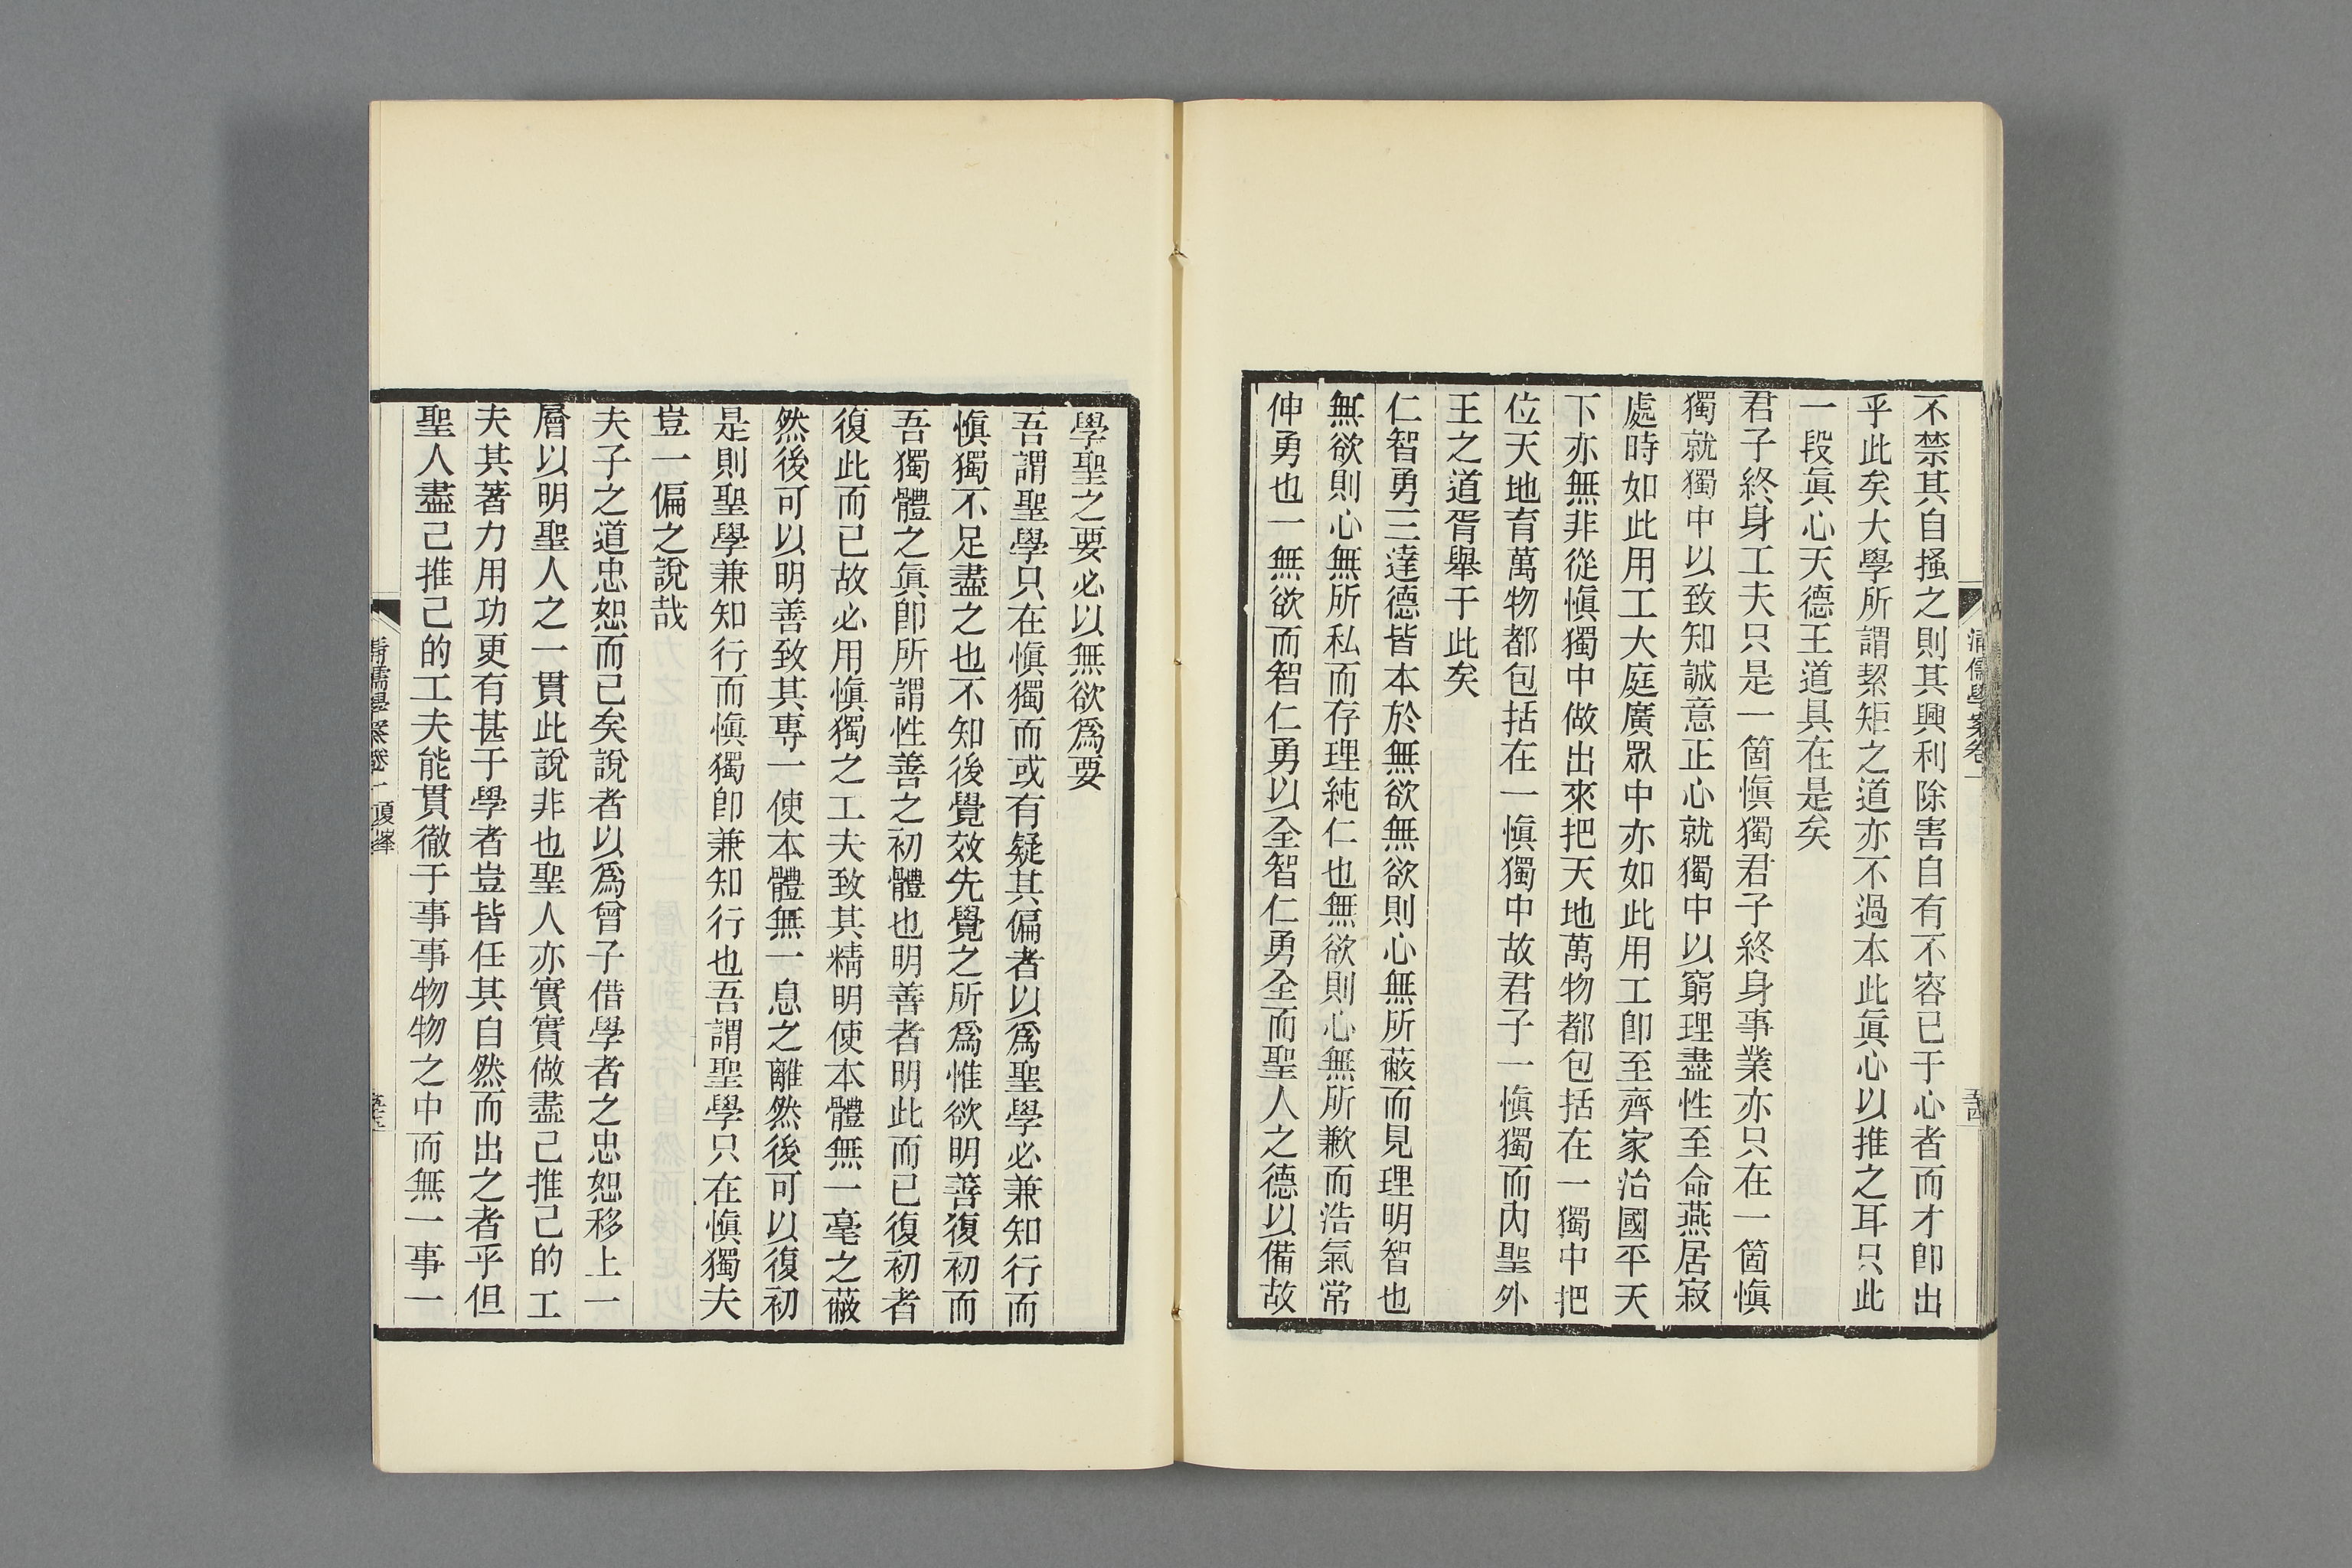 清儒學案卷一
不禁其自掻之則其興利除害自有不容已于心者而才卽出
乎此矣大學所謂絜矩之道亦不過本此眞心以推之耳只此
一段眞心天德王道具在是矣
君子終身工夫只是一箇愼獨君子終身事業亦只在一箇愼
獨就獨中以致知誠意正心就獨中以窮理盡性至命燕居寂
處時如此用工大庭廣眾中亦如此用工卽至齊家治國平天
下亦無非從愼獨中做出來把天地萬物都包括在一獨中把
位天地育萬物都包括在一愼獨中故君子一愼獨而內聖外
王之道胥舉于此矣
仁智勇三達德皆本於無欲無欲則心無所蔽而見理明智也
無欲則心無所私而存理純仁也無欲則心無所歉而浩氣常
伸勇也一無欲而智仁勇以全智仁勇全而聖人之德以備故
學聖之要必以無欲爲要
吾謂聖學只在愼獨而或有疑其偏者以爲聖學必兼知行而
愼獨不足盡之也不知後覺效先覺之所爲惟欲明善復初而
吾獨體之眞卽所謂性善之初體也明善者明此而已復初者
復此而已故必用愼獨之工夫致其精明使本體無一毫之蔽
然後可以明善致其專一使本體無一息之離然後可以復初
是則聖學兼知行而愼獨卽兼知行也吾謂聖學只在愼獨夫
豈一偏之說哉
夫子之道忠恕而已矣說者以爲曾子借學者之忠恕移上一
層以明聖人之一貫此說非也聖人亦實實做盡己推己的工
夫其著力用功更有甚于學者豈皆任其自然而出之者乎但
聖人盡己推己的工夫能貫徹于事事物物之中而無一事一
清儒學案卷一 夏峰